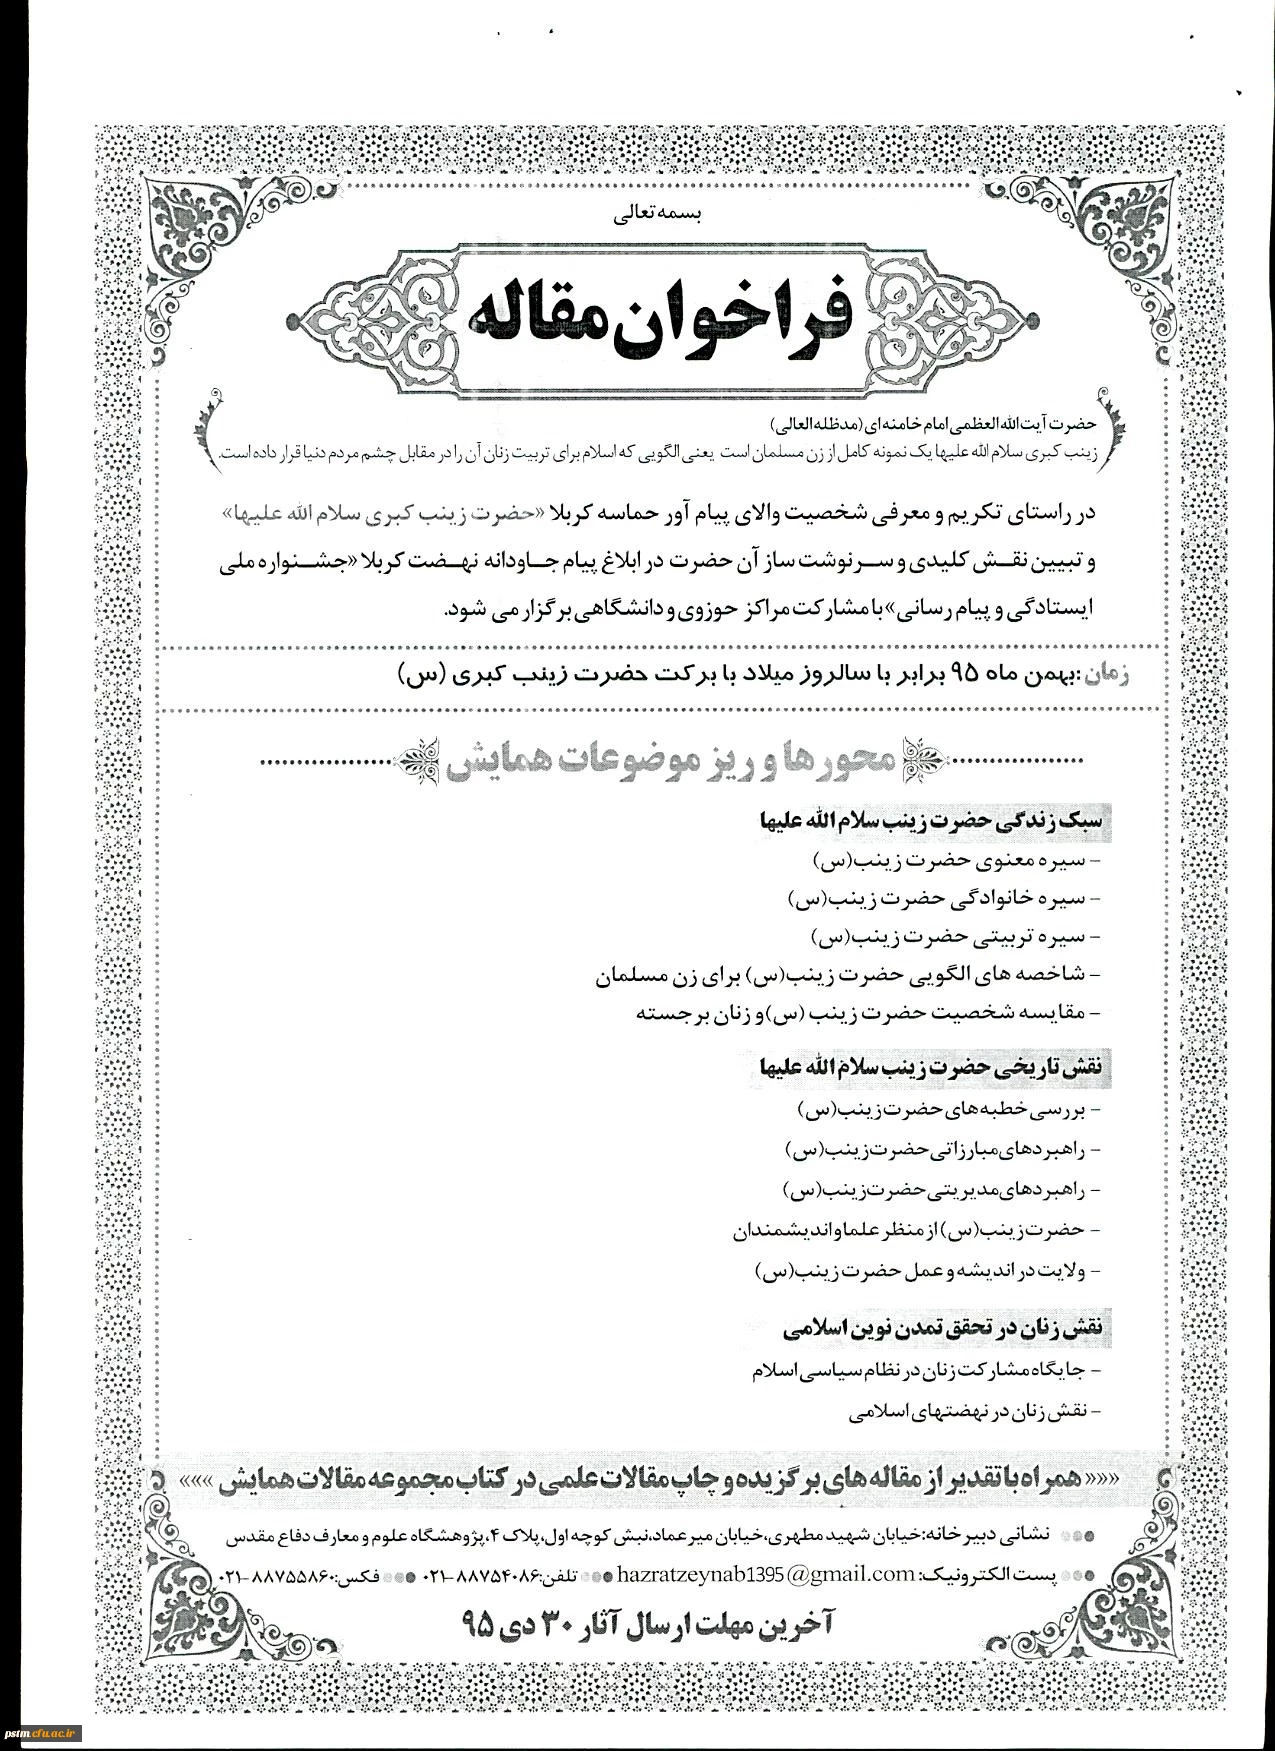 بسمه تعالی
فراخوان مقاله
حضرت آیت الله العظمی امام خامنه ای (مدظله العالی)
زینب کبری سلام الله علیها یک نمونه کامل از زن مسلمان است یعنی الگویی که اسلام برای تربیت زنان آن را در مقابل چشم مردم دنیا قرار داده است.
در راستای تکریم و معرفی شخصیت والای پیام آور حماسه کربلا «حضرت زینب کبری سلام الله علیها»
و تبیین نقش کلیدی و سرنوشت ساز آن حضرت در ابلاغ پیام جاودانه نهضت کربلا «جشنواره ملی
ایستادگی و پیام رسانی» با مشارکت مراکز حوزوی و دانشگاهی برگزار می شود.
زمان: بهمن ماه ۹۵ برابر با سالروز میلاد با برکت حضرت زینب کبری (س)
محورها و ریز موضوعات همایش
سبک زندگی حضرت زینب سلام الله علیها
- سیره معنوی حضرت زینب(س)
- سیره خانوادگی حضرت زینب(س)
- سیره تربیتی حضرت زینب(س)
- شاخصه های الگویی حضرت زینب(س) برای زن مسلمان
- مقایسه شخصیت حضرت زینب (س) و زنان برجسته
نقش تاریخی حضرت زینب سلام الله علیها
- بررسی خطبه های حضرت زینب(س)
- راهبردهای مبارزاتی حضرت زینب(س)
- راهبردهای مدیریتی حضرت زینب(س)
- حضرت زینب(س) از منظر علما و اندیشمندان
- ولایت در اندیشه و عمل حضرت زینب(س)
نقش زنان در تحقق تمدن نوین اسلامی
- جایگاه مشارکت زنان در نظام سیاسی اسلام
- نقش زنان در نهضتهای اسلامی
««« همراه با تقدیر از مقاله های برگزیده و چاپ مقالات علمی در کتاب مجموعه مقالات همایش »»»
نشانی دبیرخانه: خیابان شهید مطهری، خیابان میرعماد، نبش کوچه اول، پلاک ۴، پژوهشگاه علوم و معارف دفاع مقدس
پست الکترونیک: hazratzeynab1395@gmail.com تلفن: ۸۸۷۵۴۰۸۶-۰۲۱ فکس: ۸۸۷۵۵۸۶۰-۰۲۱
آخرین مهلت ارسال آثار ۳۰ دی ۹۵
pstm.cfu.ac.ir